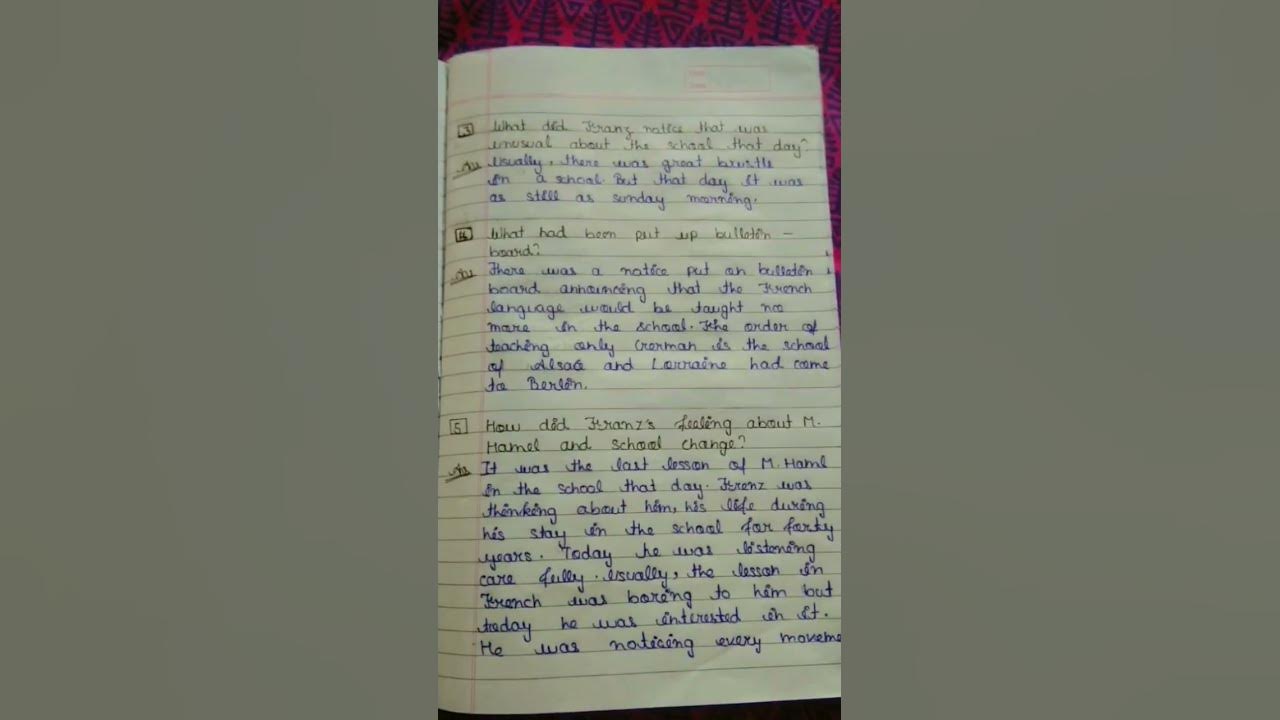 3 What did Franz notice that was
unusual about the school that day?
Ans Usually, there was great brustle
in a school. But that day it was
as still as sunday morning.
4 What had been put up bulletin -
board?
Ans There was a notice put on bulletin
board announcing that the French
language would be taught no
more in the school. The order of
teaching only German is the school
of Alsac and Lorraine had come
to Berlin.
5 How did Franz's feeling about M.
Hamel and school change?
Ans It was the last lesson of M. Haml
in the school that day. Frenz was
thinking about him, his life during
his stay in the school for forty
years. Today he was listening
care fully. Usually, the lesson in
French was boring to him but
today he was interested in it.
He was noticing every moveme